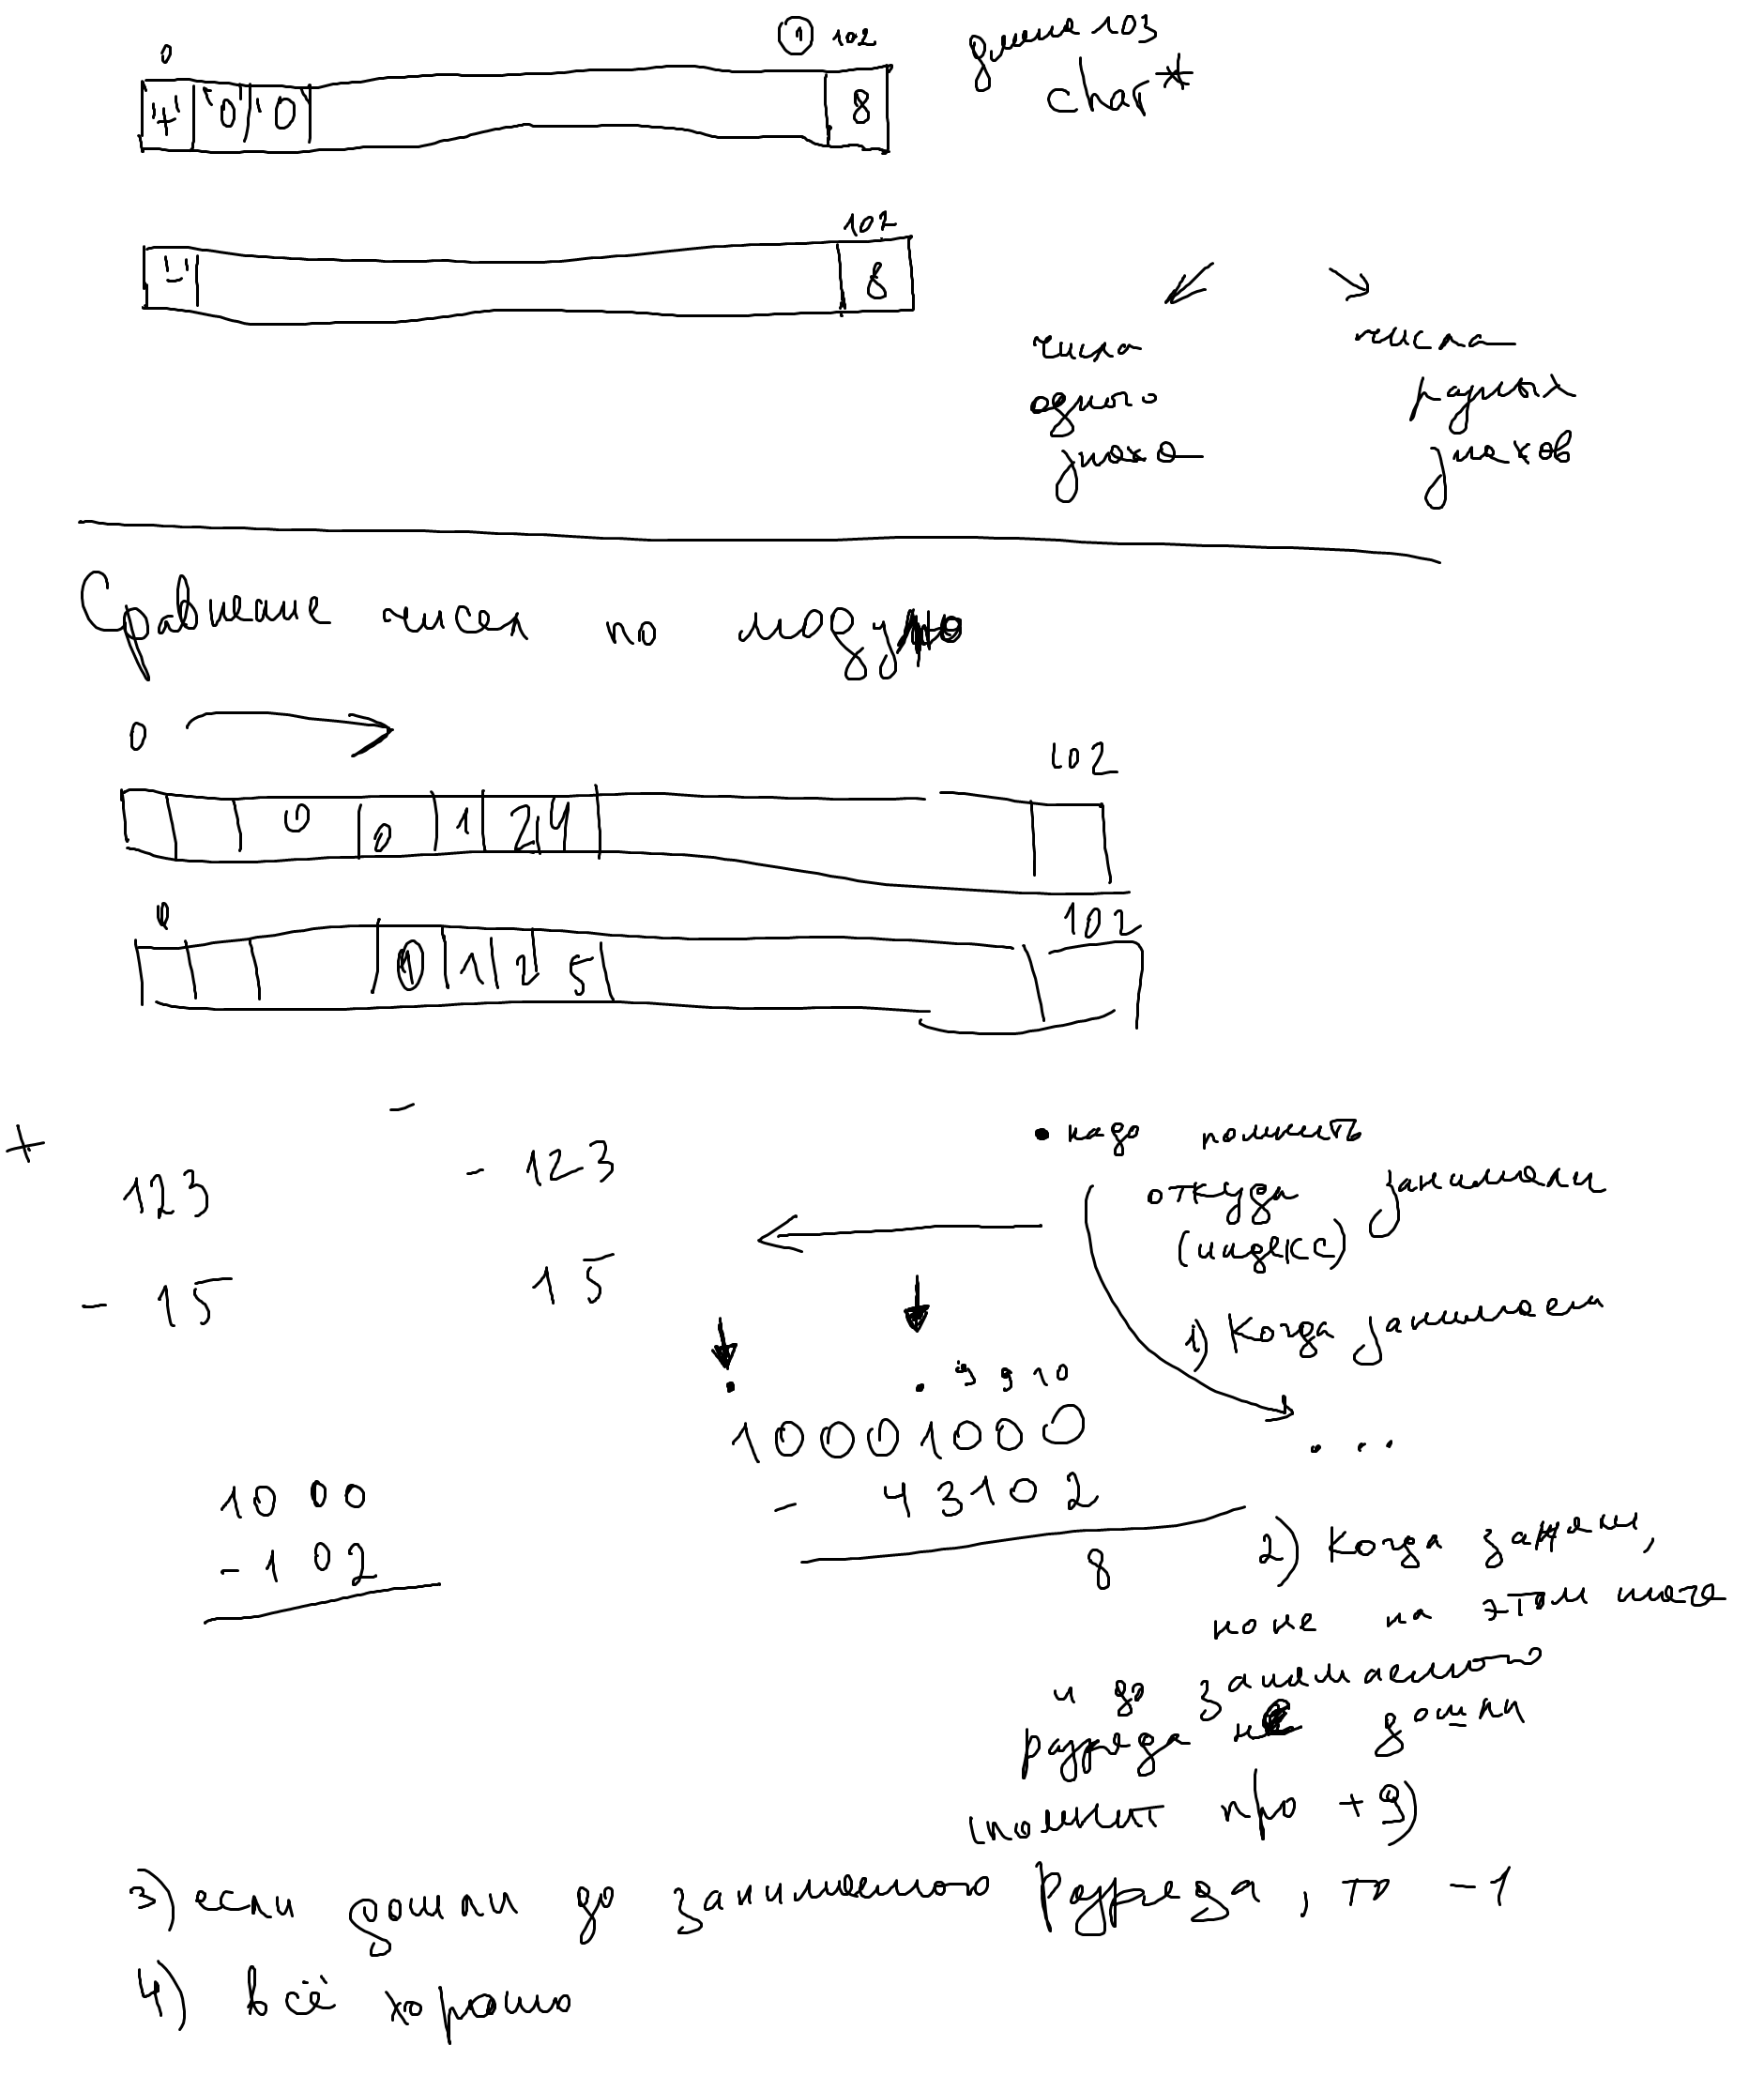 0 ① 102 длина 103
'+' '0' '0' 8 char*
102
'-' 8
числа числа
одного разных
знака знаков
Сравнение чисел по модулю
0 102
0 0 1 2 4
0 102
0 1 2 5
+ -
123 - 123
- 15 15
• надо помнить
откуда занимали
(индекс)
1) Когда занимаем
. . 9 9 10
10001000
. . .
- 43102
8
1000
- 102
2) Когда заняли,
но не на этом шаге
и до занимаемого
разряда не дошли
(помнит про +9)
3) если дошли до занимаемого разряда, то -1
4) всё хорошо